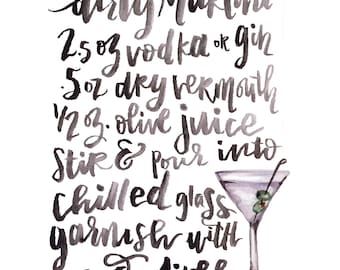 dirty Martini
2.5 oz vodka or gin
.5 oz dry vermouth
1/2 oz. olive juice
Stir & pour into
chilled glass
garnish with